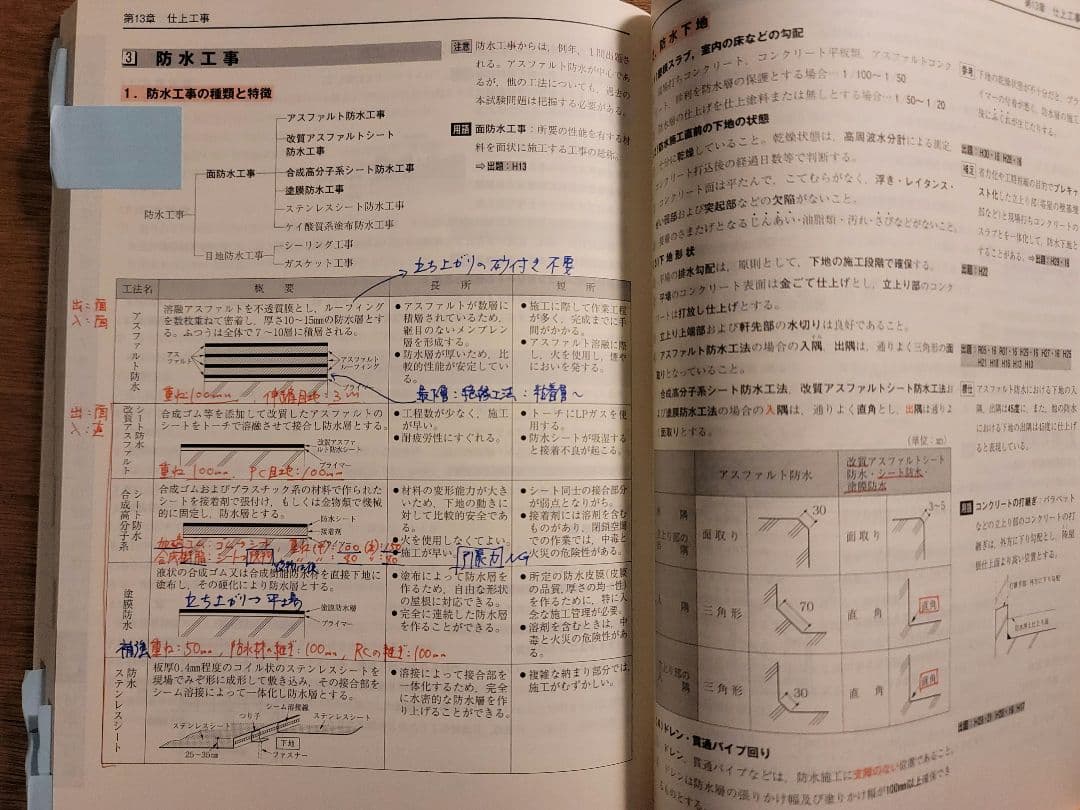 第13章 仕上工事
3 防水工事
1. 防水工事の種類と特徴
防水工事
面防水工事
目地防水工事
アスファルト防水工事
改質アスファルトシート
防水工事
合成高分子系シート防水工事
塗膜防水工事
ステンレスシート防水工事
ケイ酸質系塗布防水工事
シーリング工事
ガスケット工事
注意 防水工事からは，例年，1問出題さ
れる。アスファルト防水が中心であ
るが，他の工法についても，過去の
本試験問題は把握する必要がある。
用語 面防水工事：所要の性能を有する材
料を面状に施工する工事の総称。
⇨出題：H13
立ち上がりの砂付き不要
工法名 概要 長所 短所
出：面
入：面
アスファルト防水
溶融アスファルトを不透質膜とし，ルーフィング
を数枚重ねて密着し，厚さ10～15mmの防水層とす
る。ふつうは全体で7～10層に積層される。
アスファルト
アスファルト
ルーフィング
プライマー
重ね100mm 伸縮目地：3m
最下層：絶縁工法：粘着層～
●アスファルトが数層に
積層されているため，
継目のないメンブレン
層を形成する。
●防水層が厚いため，比
較的性能が安定してい
る。
●施工に際して作業工程
が多く，完成までに手
間がかかる。
●アスファルト溶融に際
し，火を使用し，煙や
においを発する。
出：面
入：直
改質アスファルトシート防水
合成ゴム等を添加して改質したアスファルトの
シートをトーチで溶融させて接合し防水層とする。
改質アスファ
ルト防水シート
プライマー
重ね100mm PC目地：100mm
●工程数が少なく，施工
が早い。
●耐疲労性にすぐれる。
●トーチにLPガスを使
用する。
●防水シートが吸湿する
と接着不良が起こる。
合成高分子系シート防水
合成ゴムおよびプラスチック系の材料で作られた
シートを接着剤で張付け，もしくは金物類で機械
的に固定し，防水層とする。
防水シート
接着剤
プライマー
●材料の変形能力が大き
いため，下地の動きに
対して比較的安全であ
る。
●火を使用しなくてよい。
●施工が早い。
引張力NG
●シート同士の接合部分
が弱点となりがち。
●接着剤には溶剤を含む
ものがあり，閉鎖空間
での作業では，中毒と
火災の危険性がある。
塗膜防水
液状の合成ゴム又は合成樹脂防水材を直接下地に
塗布し，その硬化により防水層とする。
立ち上がり→平場
塗膜防水層
プライマー
補強重ね：50mm，防水材の継ぎ：100mm，RCの継ぎ：100mm
●塗布によって防水層を
作るため，自由な形状
の屋根に対応できる。
●完全に連続した防水層
を作ることができる。
●所定の防水皮膜（皮膜
の品質，厚さの均一性）
を作るために，特に入
念な施工管理が必要。
●溶剤を含むときは，中
毒と火災の危険性があ
る。
ステンレスシート防水
板厚0.4mm程度のコイル状のステンレスシートを
現場でみぞ形に成形して敷き込み，その接合部を
シーム溶接によって一体化し防水層とする。
シーム溶接線
つり子
ステンレスシート
ステンレスシート
下地
ファスナー
25～35mm
●溶接によって接合部を
一体化するため，完全
に水密的な防水層を作
り上げることができる。
●複雑な納まり部分では，
施工がむずかしい。
第13章 仕上工事
防水下地
屋根スラブ，室内の床などの勾配
現場打ちコンクリート，コンクリート平板類，アスファルトコンク
砂利を防水層の保護とする場合…1／100～1／50
防水層の仕上げを仕上塗料または無しとする場合…1／50～1／20
防水施工直前の下地の状態
十分に乾燥していること。乾燥状態は，高周波水分計による測定，
コンクリート打込後の経過日数等で判断する。
コンクリート面は平たんで，こてむらがなく，浮き・レイタンス・
脆弱部および突起部などの欠陥がないこと。
接着のさまたげとなるじんあい・油脂類・汚れ・さびなどがないこと。
下地形状
平場の排水勾配は，原則として，下地の施工段階で確保する。
平場のコンクリート表面は金ごて仕上げとし，立上り部のコンク
リートは打放し仕上げとする。
立上り上端部および軒先部の水切りは良好であること。
アスファルト防水工法の場合の入隅，出隅は，通りよく三角形の面
取りとなっていること。
合成高分子系シート防水工法，改質アスファルトシート防水工法お
よび塗膜防水工法の場合の入隅は，通りよく直角とし，出隅は通りよ
く面取りとする。
（単位：mm）
アスファルト防水
改質アスファルトシート
防水・シート防水・
塗膜防水
出隅 面取り 30 面取り 3～5
入隅 三角形 70 直角 直角
立上り部の
入隅 三角形 30 直角 直角
(4) ドレン・貫通パイプ回り
ドレン，貫通パイプなどは，防水施工に支障のない位置であること。
ドレンは防水層の張りかけ幅及び塗りかけ幅が100mm以上確保でき
るものとする。
参考 下地の乾燥状態が不十分だと，プラ
イマーの付着が悪く，防水層の施工
後にふくれが生じたりする。
出題：H30・16 H28・16
補足 省力化や工期短縮の目的でプレキャ
スト化した立上り部（塔屋の壁基壇
部など）と現場打ちコンクリートの
スラブとを一体化して，防水下地と
することがある。⇨出題：H29・16
出題：H22
アスファルト防水における下地の入
隅，出隅は45度に，また，他の防水
における下地の出隅は45度に仕上げ
ると表現している。
用語 コンクリートの打継ぎ：パラペット
などの立上り部のコンクリートの打
継ぎは，外方に下り勾配とし，屋根
板仕上面より高い位置とする。
打継ぎ部，外方に下り勾配